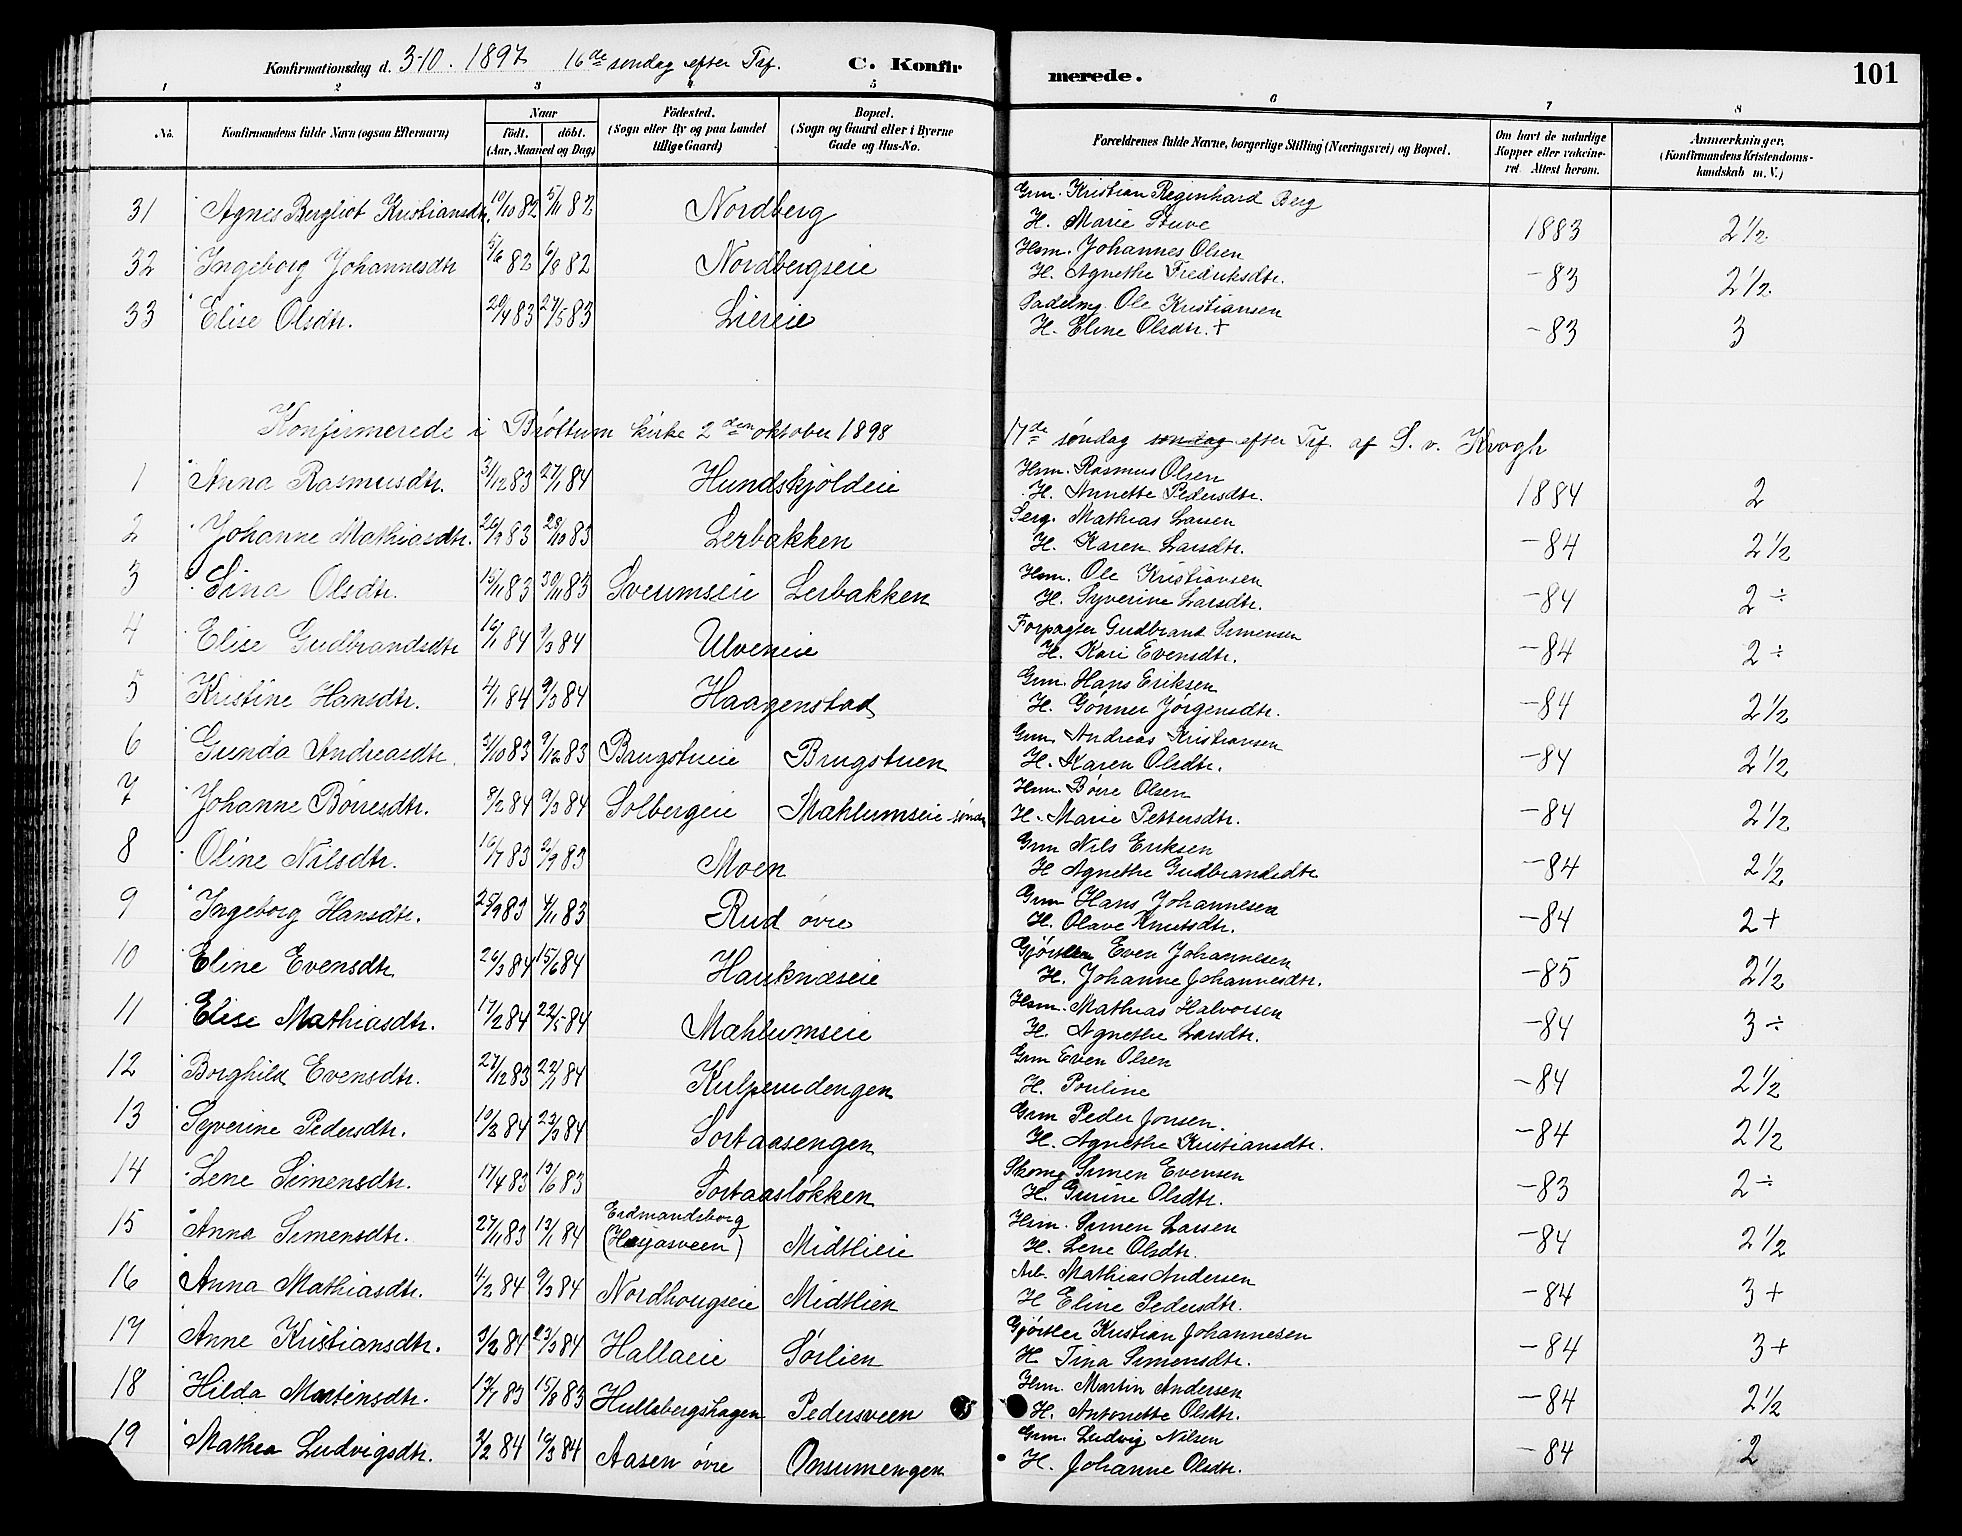 Konfirmationsdag d. 3-10. 1897 16de søndag efter Trf. C. Konfirmerede. 101
1 2 3 4. 5 6 7 8
No. Konfirmandens fulde Navn (ogsaa Efternavn) Naar født. døbt. (Aar, Maaned og Dag) Födested. (Sogn eller By og paa Landet tillige Gaard) Bopæl. (Sogn og Gaard eller i Byerne Gade og Hus-No. Forældrenes fulde Navne, borgerlige Stilling (Næringsvei) og Bopæl. Om havt de naturlige Kopper eller vakcineret. Attest herom. Anmærkninger. (Konfirmandens Kristendomskundskab m. V.)
31 Agnes Bergliot Kristiansdtr. 10/10 82 5/11 82 Nordberg Grm. Kristian Reginhard Berg
H. Marie Stuve 1883 2 1/2
32 Ingeborg Johannesdtr 5/6 82 6/8 82 Nordbergseie Hsm. Johannes Olsen
H. Agnethe Fredriksdtr. -83 2 1/2
33 Elise Olsdtr. 20/4 83 27/5 83 Liereie Sadelmg Ole Kristiansen
H. Eline Olsdtr. + -83 3
Konfirmerede i Brøttum kirke 2den oktober 1898 17de søndag søndag efter Trf. af S. v. Krogh
1 Anna Rasmusdtr. 31/12 83 27/1 84 Hundskjoldeie Hsm. Rasmus Olsen
H. Annette Pedersdtr. 1884 2
2 Johanne Mathiasdtr. 26/9 83 28/10 83 Lerbakken Serg. Mathias Larsen
H. Karen Larsdtr. -84 2 1/2
3 Sina Olsdtr. 15/11 83 30/11 83 Sveumseie Lerbakken Hsm. Ole Kristiansen
H. Syverine Larsdtr. -84 2 ÷
4 Elise Gudbrandsdtr 16/1 84 9/3 84 Ulveneie Forpagter Gudbrand Simensen
H. Kari Evensdtr. -84 2 ÷
5 Kristine Hansdtr. 4/1 84 9/3 84 Haagenstad Grm. Hans Eriksen
H. Gønner Jørgensdtr. -84 2 1/2
6 Gunda Andreasdtr. 31/10 83 9/12 83 Brugstueie Brugstuen Grm. Andreas Kristiansen
H. Karen Olsdtr. -84 2 1/2
7 Johanne Børresdtr. 8/2 84 9/3 84 Solbergeie Mæhlumseie søndr Hsm. Børe Olsen
H. Marie Pettersdtr. -84 2 1/2
8 Oline Nilsdtr. 16/7 83 2/9 83 Moen Grm Nils Eriksen
H Agnethe Gudbrandsdtr -84 2 1/2
9 Ingeborg Hansdtr. 25/9 83 4/11 83 Rud øvre Grm Hans Johannesen
H. Olave Knutsdtr. -84 2 +
10 Eline Evensdtr 26/3 84 15/6 84 Hauknæseie Gjørtler Even Johannesen
H. Johanne Johannesdtr. -85 2 1/2
11 Elise Mathiasdtr. 17/2 84 22/5 84 Mæhlumseie Hsm. Mathias Halvorsen
H. Agnethe Larsdtr. -84 3 ÷
12 Borghild Evensdtr. 27/12 83 22/1 84 Kulperudengen Grm Even Olsen
H. Pouline -84 2 1/2
13 Syverine Pedersdtr. 10/2 84 23/3 84 Sortaasengen Grm Peder Jonsen.
H. Agnethe Kristiansdtr. -84 2 1/2
14 Lene Simensdtr. 17/4 83 13/6 83 Sortaasløkken Skomg Simen Evensen
H. Gurine Olsdtr. -83 2 ÷
15 Anna Simensdtr. 27/11 83 13/1 84 Erdmandsborg (Højasveen) Midtlieie Hsm. Simen Larsen
H. Lene Olsdtr. -84 2 1/2
16 Anna Mathiasdtr. 4/2 84 9/3 84 Nordhougseie Midtlien Arb. Mathias Andersen
H Eline Pedersdtr. -84 3 +
17 Anne Kristiansdtr. 3/2 84 23/3 84 Hallaeie Sørlien Gjørtler Kristian Johannesen
H Tina Simensdtr. -84 3 +
18 Hilda Martinsdtr. 12/7 83 15/8 83 Hullebergshagen Pedersveen Hsm. Martin Andersen
H. Antonette Olsdtr. -84 2 1/2
19 Mathea Ludvigsdtr. 3/2 84 16/3 84 Aasen øvre Onsumengen Grm. Ludvig Nilsen
H. Johanne Olsdtr. -84 2